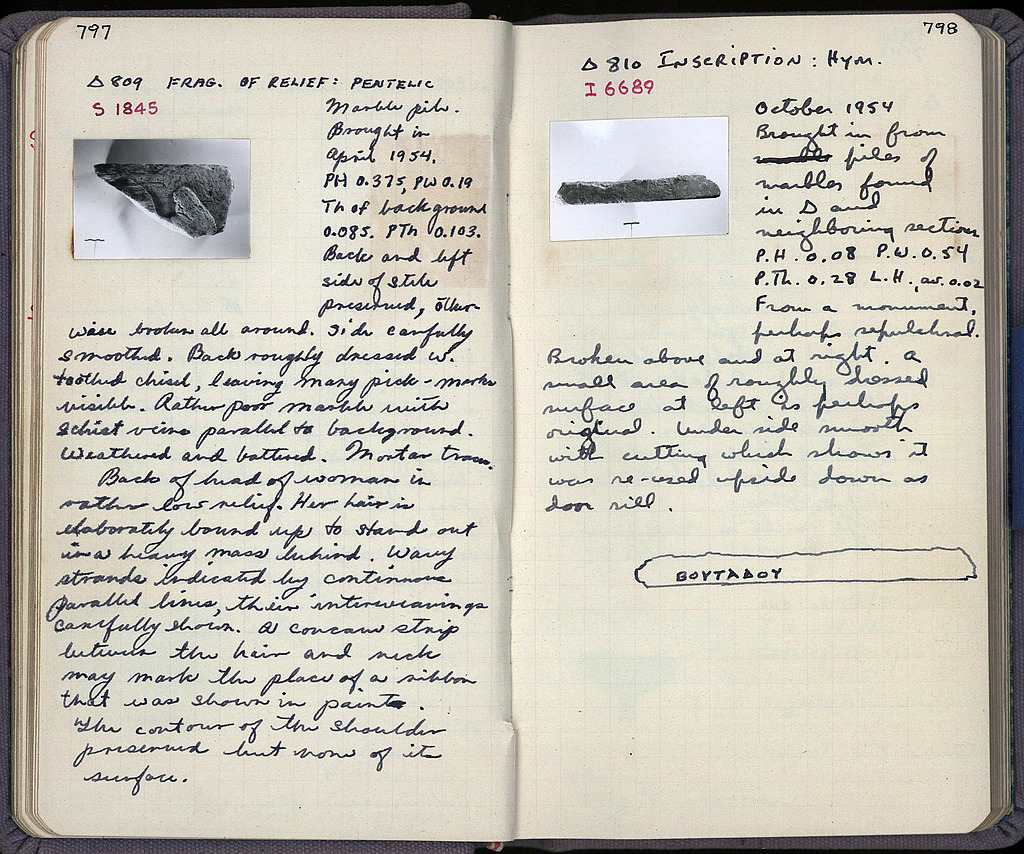 797
Δ 809 FRAG. OF RELIEF: PENTELIC
S 1845
Marble pile.
Brought in
April 1954.
PH 0.375, PW 0.19
Th of background
0.085. PTh 0.103.
Back and left
side of stele
preserved, other-
wise broken all around. Side carefully
smoothed. Back roughly dressed w.
toothed chisel, leaving many pick-marks
visible. Rather poor marble with
schist veins parallel to background.
Weathered and battered. Mortar traces.
Back of head of woman in
rather low relief. Her hair is
elaborately bound up to stand out
in a heavy mass behind. Wavy
strands indicated by continuous
parallel lines, their interweavings
carefully shown. A concave strip
between the hair and neck
may mark the place of a ribbon
that was shown in paint.
The contour of the shoulder
preserved but none of its
surface.
798
Δ 810 INSCRIPTION: HYM.
I 6689
October 1954
Brought in from
marble piles of
marbles found
in Δ and
neighboring section
P.H. 0.08 P.W. 0.54
P.Th. 0.28 L.H., av. 0.02
From a monument,
perhaps sepulchral.
Broken above and at right. A
small area of roughly dressed
surface at left is perhaps
original. Under side smooth
with cutting which shows it
was re-used upside down as
door sill.
ΒΟΥΤΑΔΟΥ